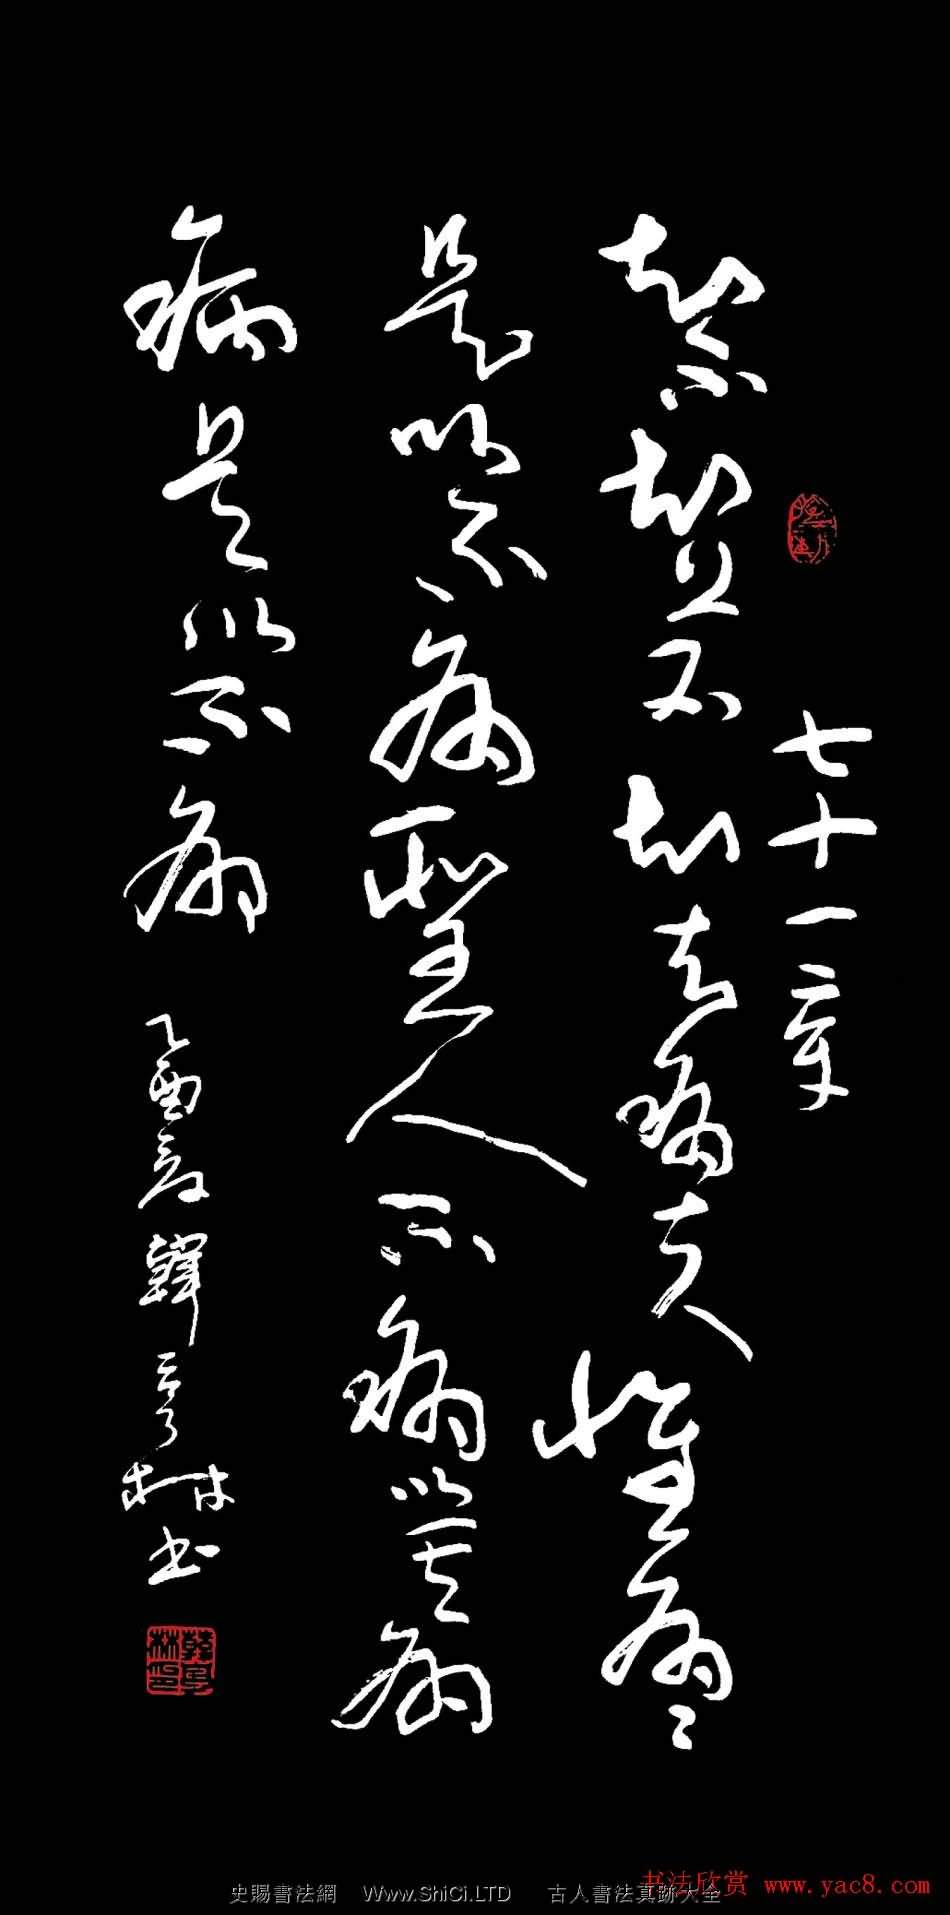 七十一章
知不知上不知知病夫惟病々
是以不病聖人不病以其病
病是以不病
乙酉夏韓亨林书
韓亨林印
史賜書法網 Www.ShiCi.LTD 古人書法真跡大全
书法欣赏 www.yac8.com